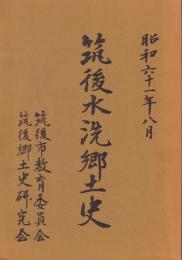 昭和六十一年八月
筑後水洗郷土史
筑後市教育委員会
筑後郷土史研究会